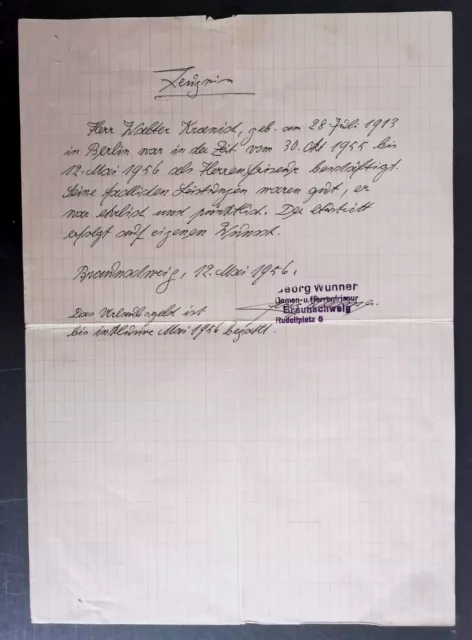 Zeugnis
Herr Walter Kraenick, geb. am 28. Juli 1913
in Berlin war in der Zeit vom 30. Okt 1955 bis
12. Mai 1956 als Herrenfriseur beschäftigt.
Seine fachlichen Leistungen waren gut, er
war ehrlich und pünktlich. Der Austritt
erfolgt auf eigenen Wunsch.
Braunschweig, 12. Mai 1956.
Georg Wunner
Damen- u. Herrenfriseur
Braunschweig
Rudolfplatz 5
Das Urlaubsgeld ist
bis inklusive Mai 1956 bezahlt.